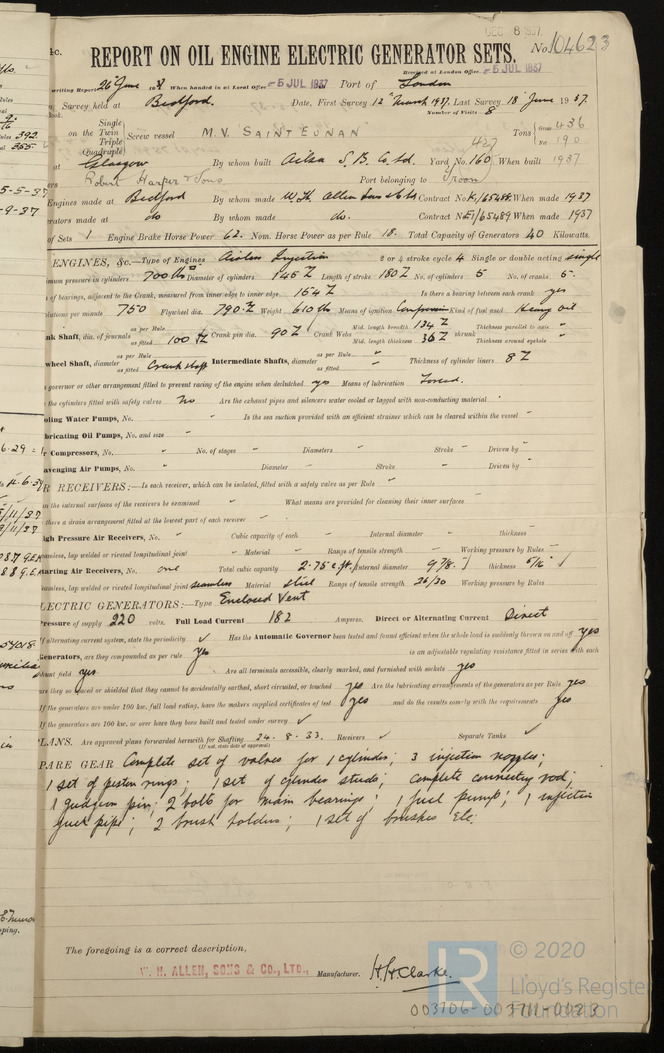 DEC 8 1937
REPORT ON OIL ENGINE ELECTRIC GENERATOR SETS. No. 104623
Received at London Office -5 JUL 1937
writing Report 26 June 19 When handed in at Local Office -5 JUL 1937 Port of London
Survey held at Bedford. Date, First Survey 12th March 1937. Last Survey 18 June 1937.
Number of Visits 8
on the Single Twin Triple Quadruple Screw vessel M.V. SAINT EUNAN Tons Gross 436 Net 190
427
at Glasgow By whom built Ailsa S. B. Co. Ltd. Yard No. 160 When built 1937
Robert Harper & Sons Port belonging to Troon
Engines made at Bedford By whom made W.H. Allen Sons & Co Ltd Contract No. K1/65488 When made 1937
do By whom made do. Contract No. E1/65489 When made 1937
of Sets 1 Engine Brake Horse Power 62. Nom. Horse Power as per Rule 18. Total Capacity of Generators 40 Kilowatts.
ENGINES, &c.—Type of Engines Airless Injection 2 or 4 stroke cycle 4 Single or double acting single
pressure in cylinders 700 lbs Diameter of cylinders 145 Length of stroke 180 No. of cylinders 5 No. of cranks 5.
of bearings, adjacent to the Crank, measured from inner edge to inner edge 154 Is there a bearing between each crank yes
per minute 750 Flywheel dia. 790 Weight 610 lbs Means of ignition Compression Kind of fuel used Heavy oil
Shaft, dia. of journals as per Rule as fitted 100 Crank pin dia. 90 Crank Webs Mid. length breadth 134 Mid. length thickness 36 shrunk Thickness parallel to axis " Thickness around eyehole "
wheel Shaft, diameter as per Rule as fitted Crank shaft Intermediate Shafts, diameter as per Rule " as fitted " Thickness of cylinder liners 8
governor or other arrangement fitted to prevent racing of the engine when declutched yes Means of lubrication Forced.
the cylinders fitted with safety valves No Are the exhaust pipes and silencers water cooled or lagged with non-conducting material
Cooling Water Pumps, No. " Is the sea suction provided with an efficient strainer which can be cleared within the vessel
Lubricating Oil Pumps, No. and size
Compressors, No. " No. of stages " Diameters " Stroke " Driven by
Scavenging Air Pumps, No. " Diameter " Stroke " Driven by
RECEIVERS:—Is each receiver, which can be isolated, fitted with a safety valve as per Rule "
the internal surfaces of the receivers be examined " What means are provided for cleaning their inner surfaces
there a drain arrangement fitted at the lowest part of each receiver
High Pressure Air Receivers, No. " Cubic capacity of each " Internal diameter " thickness
seamless, lap welded or riveted longitudinal joint " Material " Range of tensile strength " Working pressure by Rules
Starting Air Receivers, No. one Total cubic capacity 2.75 c.ft. Internal diameter 9 7/8" thickness 5/16"
seamless, lap welded or riveted longitudinal joint seamless Material steel Range of tensile strength 26/30 Working pressure by Rules
ELECTRIC GENERATORS:—Type Enclosed Vent
Pressure of supply 220 volts. Full Load Current 182 Amperes. Direct or Alternating Current Direct
If alternating current system, state the periodicity ✓ Has the Automatic Governor been tested and found efficient when the whole load is suddenly thrown on and off yes
Generators, are they compounded as per rule yes is an adjustable regulating resistance fitted in series with each
shunt field yes Are all terminals accessible, clearly marked, and furnished with sockets yes
are they so spaced or shielded that they cannot be accidentally earthed, short circuited, or touched yes Are the lubricating arrangements of the generators as per Rule yes
If the generators are under 100 kw. full load rating, have the makers supplied certificates of test yes and do the results comply with the requirements yes
If the generators are 100 kw. or over have they been built and tested under survey ✓
PLANS. Are approved plans forwarded herewith for Shafting 24.8.33. Receivers ✓ Separate Tanks ✓
(If not, state date of approval)
SPARE GEAR Complete set of valves for 1 cylinder; 3 injection nozzles;
1 set of piston rings; 1 set of cylinder studs; complete connecting rod;
1 gudgeon pin; 2 bolts for main bearings; 1 fuel pump; 1 injection
fuel pipe; 2 brush holders; 1 set of brushes Etc.
The foregoing is a correct description,
W. H. ALLEN, SONS & CO., LTD., Manufacturer. H.H. Clarke.
© 2020
LR
Lloyd's Register
Foundation
003706-003711-0023